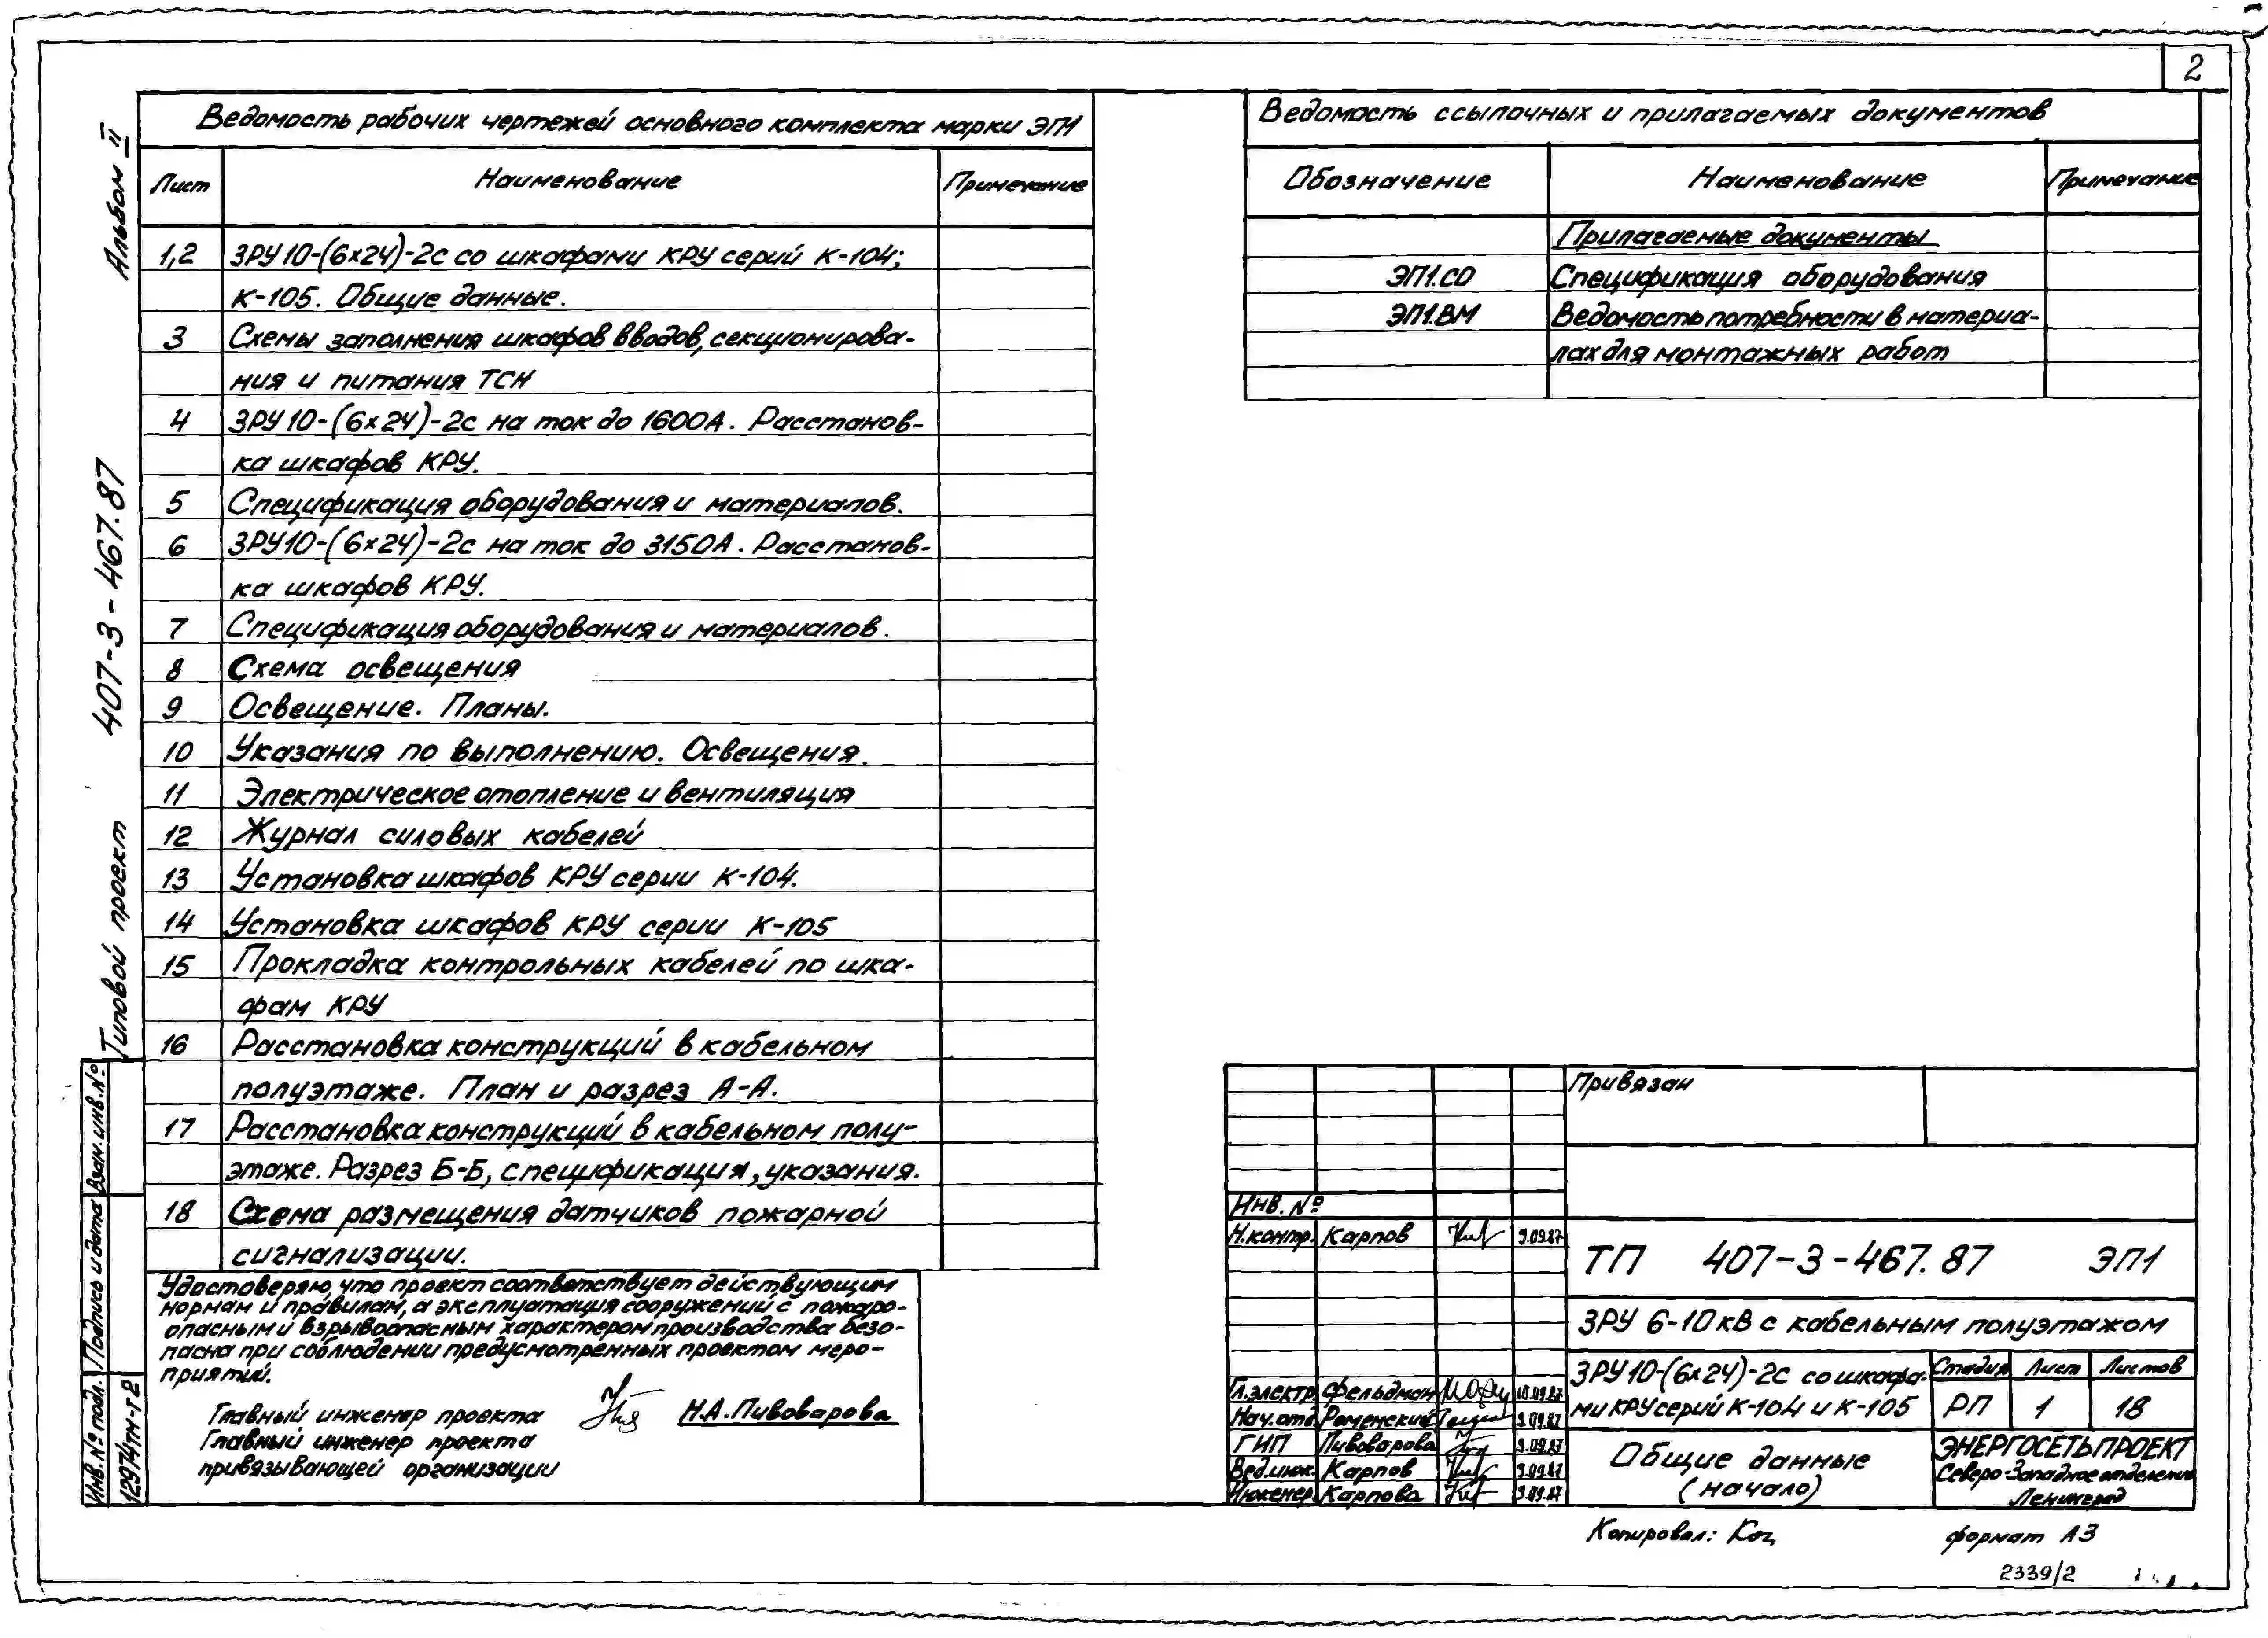 2
Альбом II
Типовой проект 407-3-467.87
Ведомость рабочих чертежей основного комплекта марки ЭП1
Лист Наименование Примечание
1,2 ЗРУ10-(6х24)-2с со шкафами КРУ серий К-104;
К-105. Общие данные.
3 Схемы заполнения шкафов вводов, секционирова-
ния и питания ТСН
4 ЗРУ10-(6х24)-2с на ток до 1600А. Расстанов-
ка шкафов КРУ.
5 Спецификация оборудования и материалов.
6 ЗРУ10-(6х24)-2с на ток до 3150А. Расстанов-
ка шкафов КРУ.
7 Спецификация оборудования и материалов.
8 Схема освещения
9 Освещение. Планы.
10 Указания по выполнению. Освещения.
11 Электрическое отопление и вентиляция
12 Журнал силовых кабелей
13 Установка шкафов КРУ серии К-104.
14 Установка шкафов КРУ серии К-105
15 Прокладка контрольных кабелей по шка-
фам КРУ
16 Расстановка конструкций в кабельном
полуэтаже. План и разрез А-А.
17 Расстановка конструкций в кабельном полу-
этаже. Разрез Б-Б, спецификация, указания.
18 Схема размещения датчиков пожарной
сигнализации.
Удостоверяю, что проект соответствует действующим
нормам и правилам, а эксплуатация сооружений с пожаро-
опасным и взрывоопасным характером производства безо-
пасна при соблюдении предусмотренных проектом меро-
приятий.
Главный инженер проекта Н.А.Пивоварова
Главный инженер проекта
привязывающей организации
Взам.инв.№
Подпись и дата
Инв.№ подл.
12974тм-т2
Ведомость ссылочных и прилагаемых документов
Обозначение Наименование Примечание
Прилагаемые документы
ЭП1.СО Спецификация оборудования
ЭП1.ВМ Ведомость потребности в материа-
лах для монтажных работ
Привязан
Инв. №
Н.контр. Карпов 9.09.87
ТП 407-3-467.87 ЭП1
ЗРУ 6-10кВ с кабельным полуэтажом
Гл.электр. Фельдман 10.09.87
Нач.отд. Роменский 9.09.87
ГИП Пивоварова 9.09.87
Вед.инж. Карпов 9.09.87
Инженер. Карпова 9.09.87
ЗРУ10-(6х24)-2с со шкафа-
ми КРУ серий К-104 и К-105
Стадия Лист Листов
РП 1 18
Общие данные
(начало)
ЭНЕРГОСЕТЬПРОЕКТ
Северо-Западное отделение
Ленинград
Копировал:
формат А3
2339/2